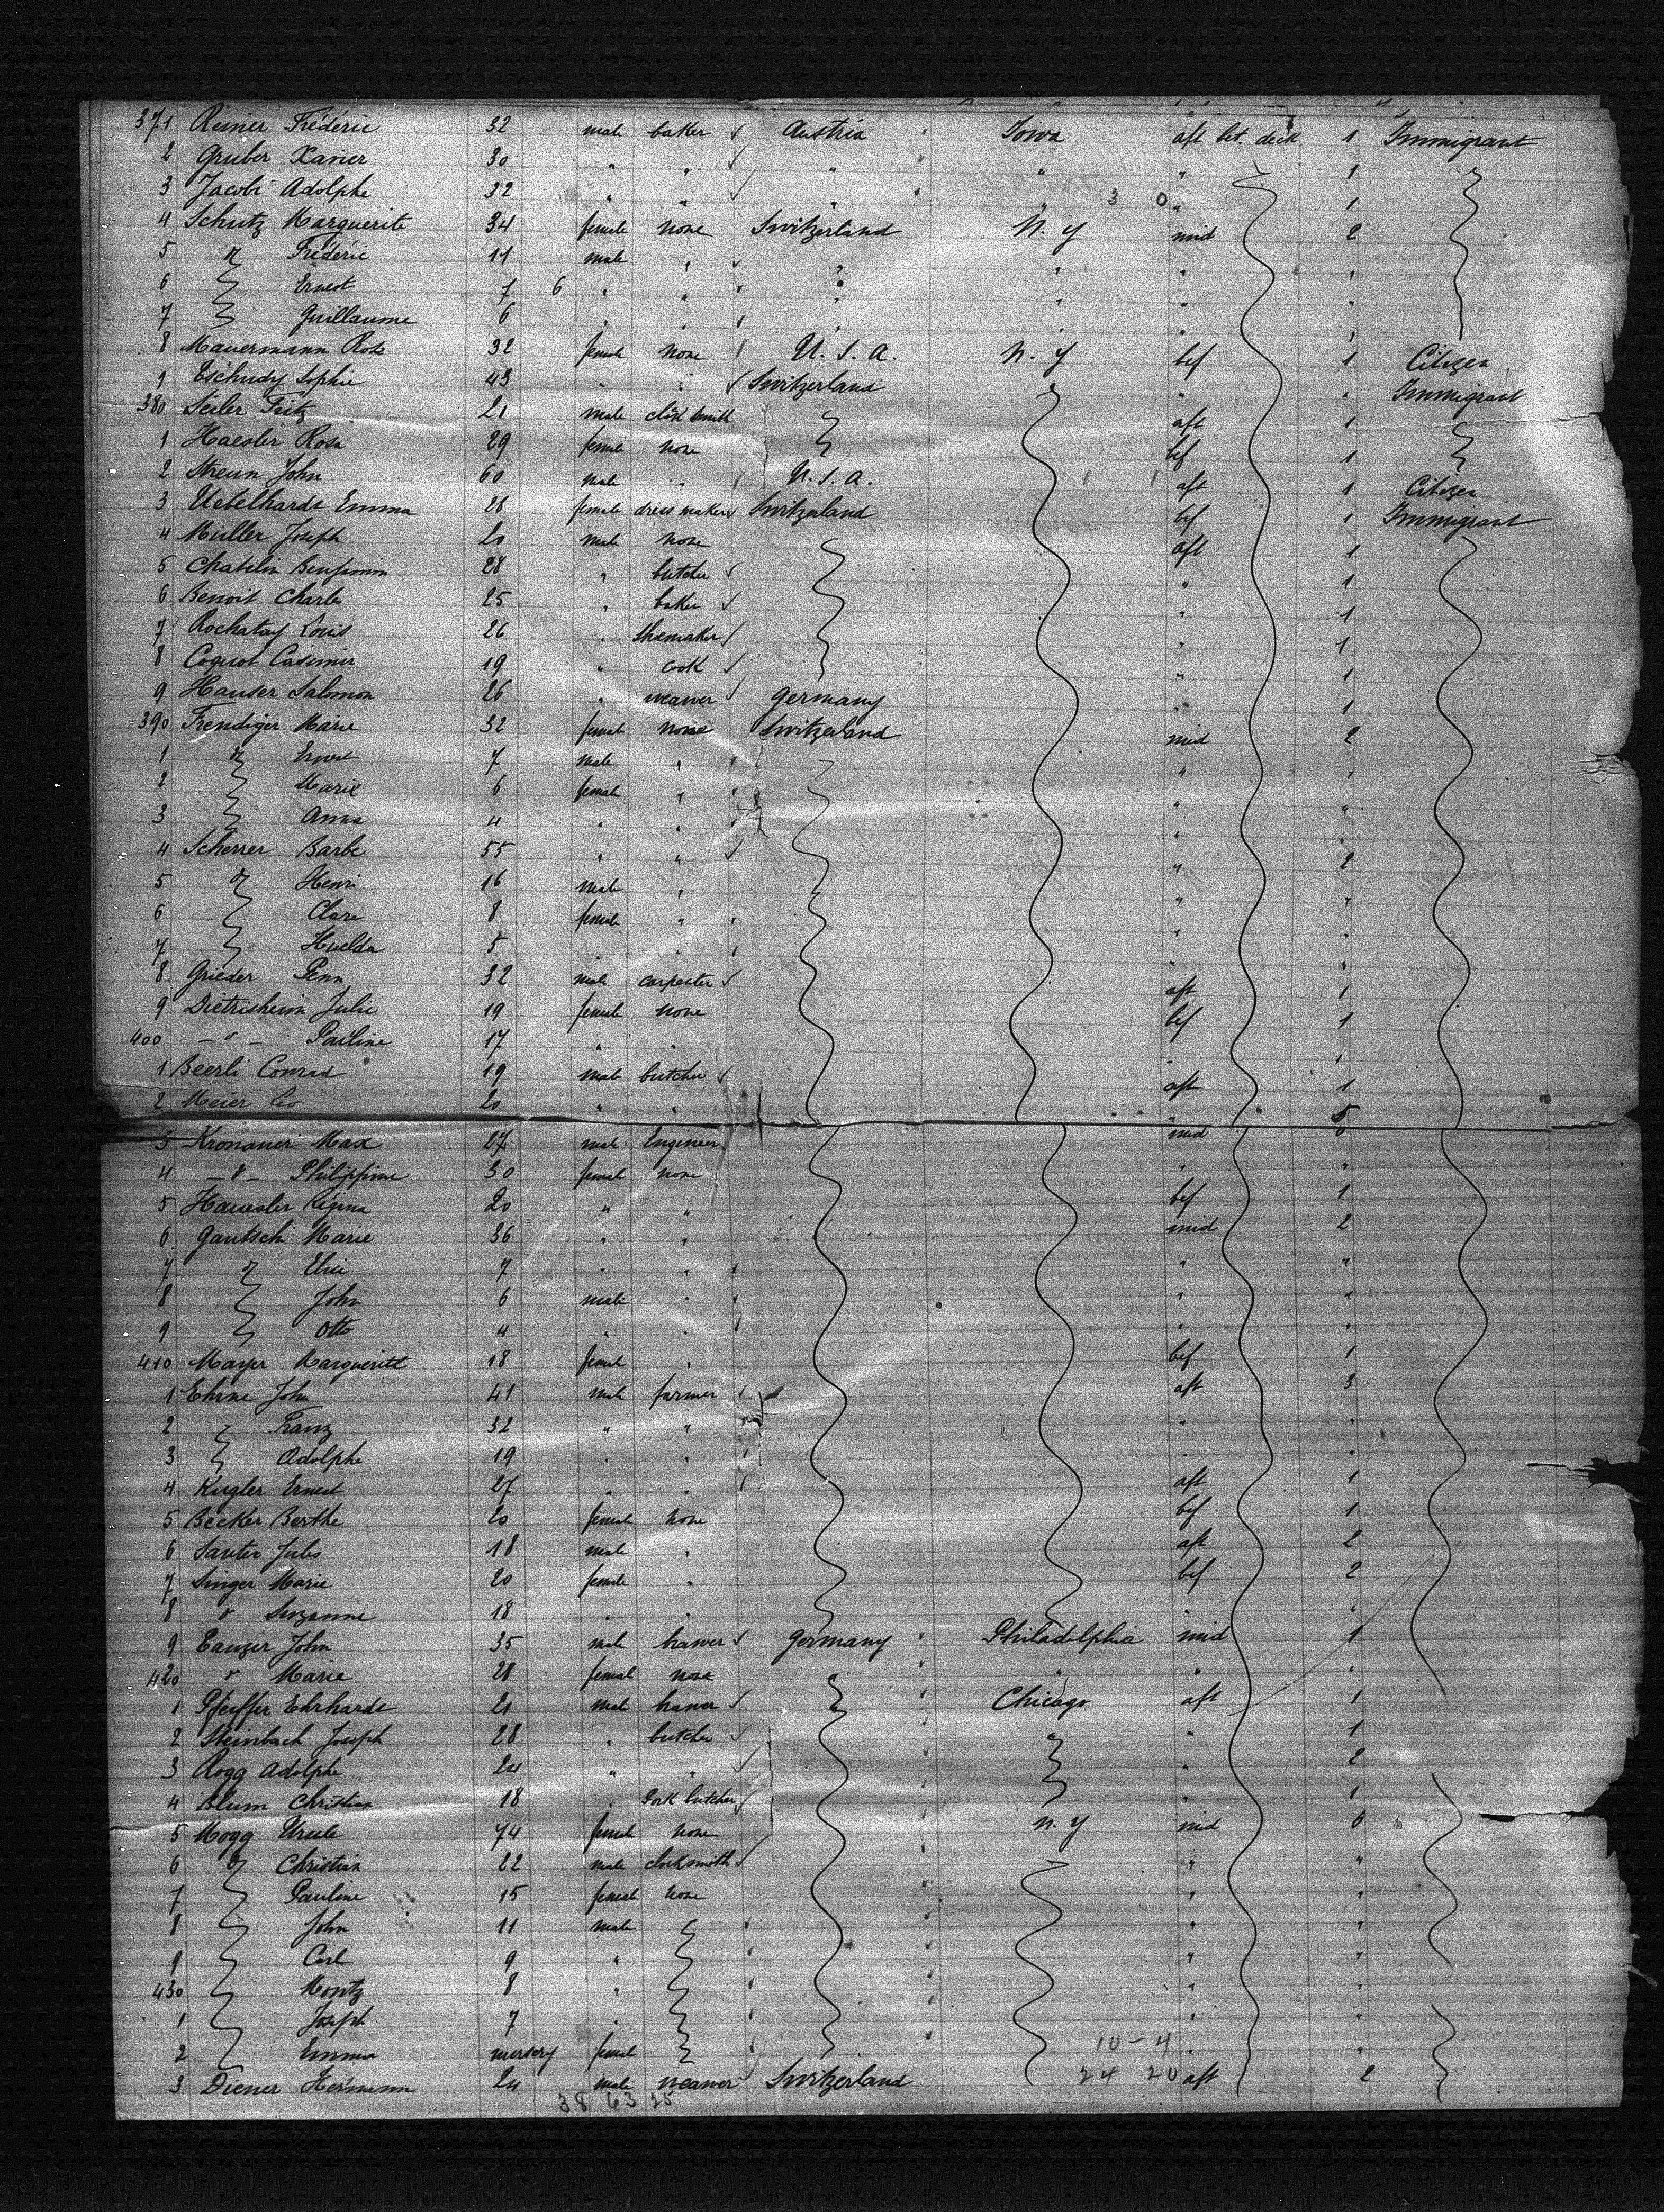 371 Reiner Frédéric 32 male baker Austria Iowa aft bet. deck 1 Immigrant
2 Gruber Xavier 30 " " " " " 1
3 Jacobi Adolphe 32 " " " " 3 0 " 1
4 Schutz Marguerite 34 female none Switzerland N. Y mid 2
5 " Frédéric 11 male " " " " "
6 Ernest 7 6 " " " " " "
7 Guillaume 6 " " " " " "
8 Mauermann Rose 32 female none U. S. A. N. Y bef 1 Citizen
9 Eschudy Sophie 43 " " Switzerland " " Immigrant
380 Seiler Fritz 21 male smith aft 1
1 Haesler Rosa 29 female none bef 1
2 Streun John 60 male " U. S. A. aft 1 Citizen
3 Uebelhardt Emma 28 female dress maker Switzerland bef 1 Immigrant
4 Müller Joseph 20 male none aft 1
5 Chatelin Benjamin 28 " butcher " 1
6 Benoit Charles 25 " baker " 1
7 Rochatay Louis 26 " shoemaker " 1
8 Coquot Casimir 19 " cook " 1
9 Hauser Salomon 26 " weawer Germany " 1
390 Frendiger Marie 32 female none Switzerland mid 2
1 " Ernest 7 male " " "
2 Marie 6 female " " "
3 Anna 4 " " " "
4 Scherrer Barbe 55 " " " 2
5 " Henri 16 male " " "
6 Clara 8 female " " "
7 Huelda 5 " " " "
8 Grieder 32 male carpenter aft 1
9 Dietrisheim Julie 19 female none bef 1
400 - " - Pauline 17 " " " "
1 Beerli Conrad 19 male butcher aft 1
2 Meier Leo 20 " " " 5
3 Kronauer Max 27 male Engineer mid
4 - " - Philippine 30 female none " "
5 Hauesler Régina 20 " " bef 1
6 Gautschi Marie 36 " " mid 2
7 " 7 " " " "
8 John 6 male " " "
9 Otto 4 " " " "
410 Mayer Marguerite 18 female " bef 1
1 Ehrne John 41 male farmer aft 3
2 Franz 32 " " " "
3 Adolphe 19 " " " "
4 Kugler Ernest 27 " " aft 1
5 Becker Berthe 20 female none bef 1
6 Sauter Jules 18 male " aft 2
7 Singer Marie 20 female " bef 2
8 " Suzanne 18 " " " "
9 John 35 male brawer Germany Philadelphia mid 1
420 " Marie 28 female none " " "
1 Pfeiffer Ehrhardt 21 male brawer Chicago aft 1
2 Steinbach Joseph 28 " butcher " 1
3 Rogg Adolphe 24 " " " 2
4 Blum Christian 18 " Pork butcher " 1
5 Mogg Ursule 74 female none N. Y mid 6
6 " Christian 22 male clocksmith " "
7 Pauline 15 female none " "
8 John 11 male " "
9 Carl 9 " " "
430 Moritz 8 " " "
1 Joseph 7 " " "
2 Emma nursery female 10-4 " "
3 Diener Hermann 24 male weawer Switzerland 24 20 aft 2
38 63 25